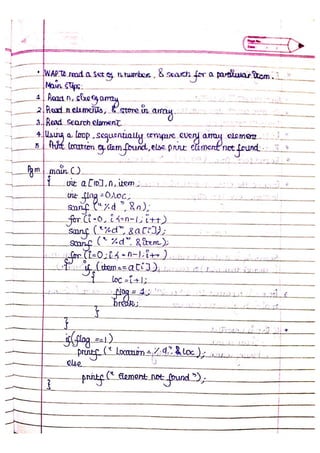 Page No.
Date
• WAP to read a set of n number, & search for a particular item.
Main Steps:
1. Read n, size of array
2. Read n elements, & store in array
3. Read search element
4. Using a loop, sequentially compare every array element
5. Print location of item found, else print element not found
Pgm main ( )
{ int a [10], n, item;
int flag = 0, loc;
scanf (" %d ", &n);
for (i=0; i<=n-1; i++)
scanf ("%d", &a[i]);
scanf (" %d", &item);
for (i=0; i<=n-1; i++)
{ if (item==a[i])
{ loc = i+1;
flag = 1;
break;
}
}
if (flag ==1)
printf (" Location = %d", & loc);
else
printf (" Element not found ");
}